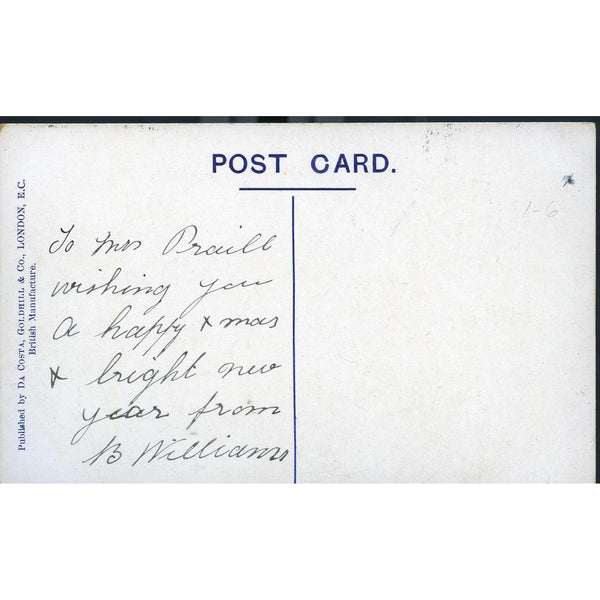 POST CARD.
Published by DA COSTA, GOLDHILL & Co., LONDON, E.C.
British Manufacture.
To Mrs Praill
wishing you
A happy xmas
& bright new
year from
B Williams
1-6